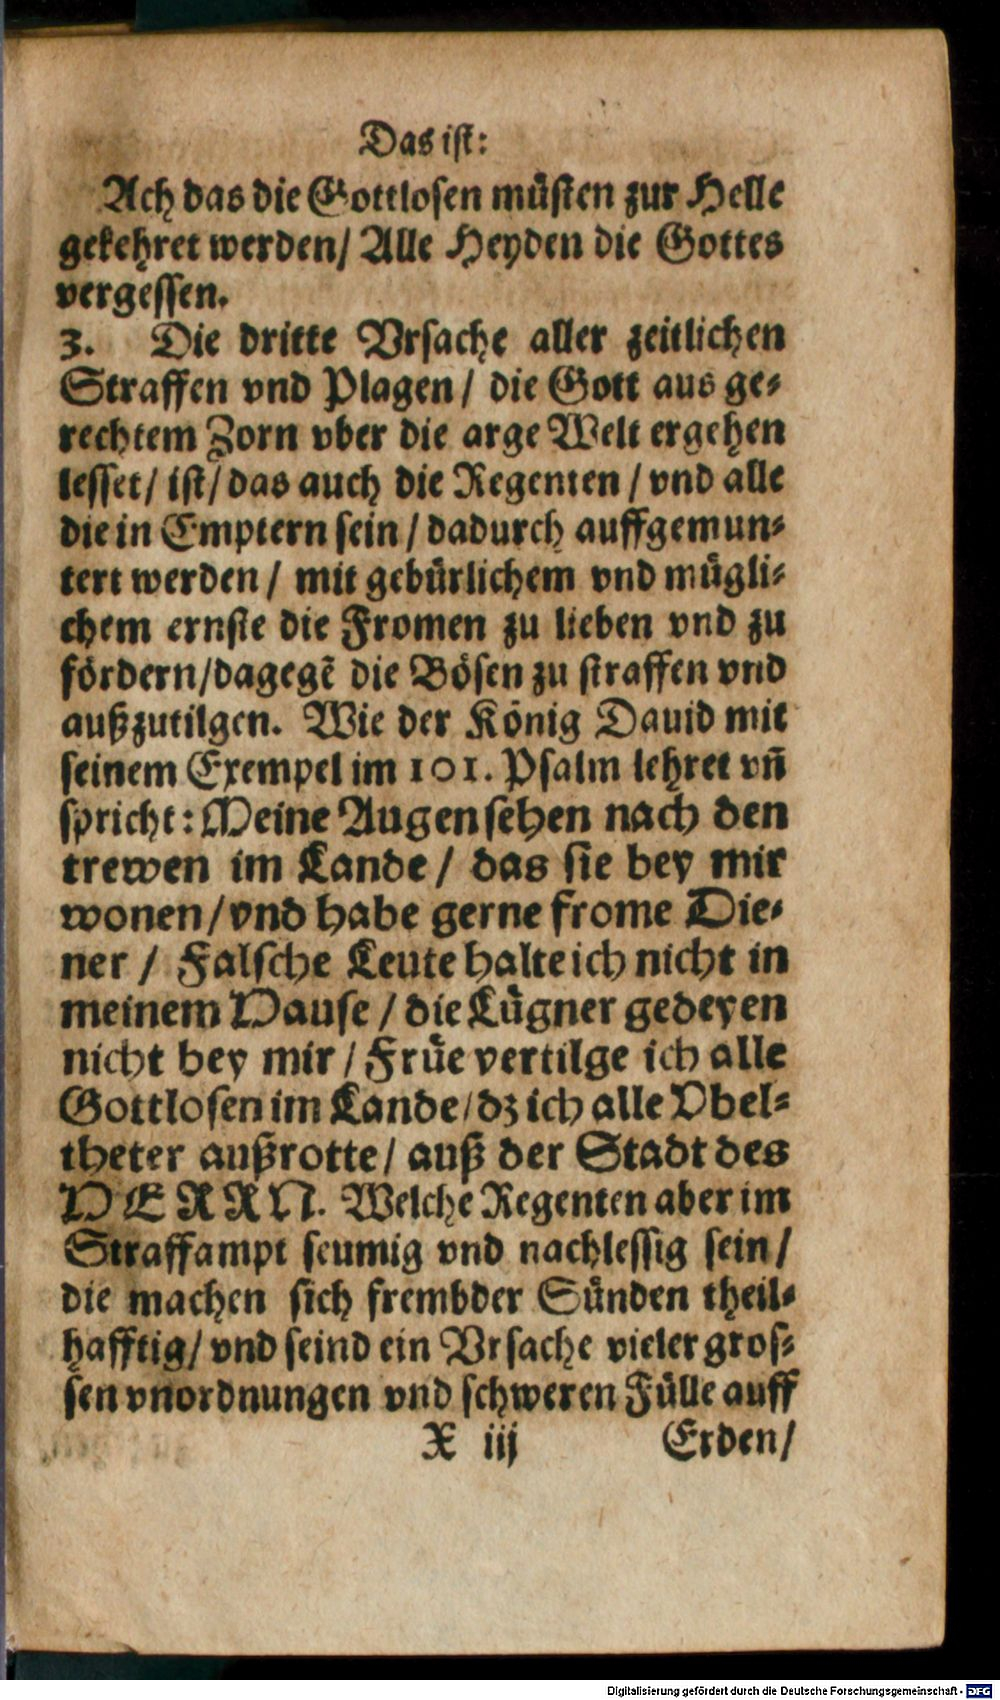 Das ist:
Ach das die Gottlosen müsten zur Helle
gekehret werden/ Alle Heyden die Gottes
vergessen.
3. Die dritte Vrsache aller zeitlichen
Straffen vnd Plagen/ die Gott aus ge-
rechtem Zorn vber die arge Welt ergehen
lesset/ ist/ das auch die Regenten/ vnd alle
die in Emptern sein/ dadurch auffgemun-
tert werden/ mit gebürlichem vnd mügli-
chem ernste die Fromen zu lieben vnd zu
fördern/dagegẽ die Bösen zu straffen vnd
außzutilgen. Wie der König Dauid mit
seinem Exempel im 101. Psalm lehret vñ
spricht: Meine Augen sehen nach den
trewen im Lande/ das sie bey mir
wonen/ vnd habe gerne frome Die-
ner/ Falsche Leute halte ich nicht in
meinem Hause/ die Lügner gedeyen
nicht bey mir/ Früe vertilge ich alle
Gottlosen im Lande/ dz ich alle Vbel-
theter außrotte/ auß der Stadt des
HERRN. Welche Regenten aber im
Straffampt seumig vnd nachlessig sein/
die machen sich frembder Sünden theil-
hafftig/ vnd seind ein Vrsache vieler gros-
sen vnordnungen vnd schweren Fülle auff
X iij Erden/
Digitalisierung gefördert durch die Deutsche Forschungsgemeinschaft - DFG